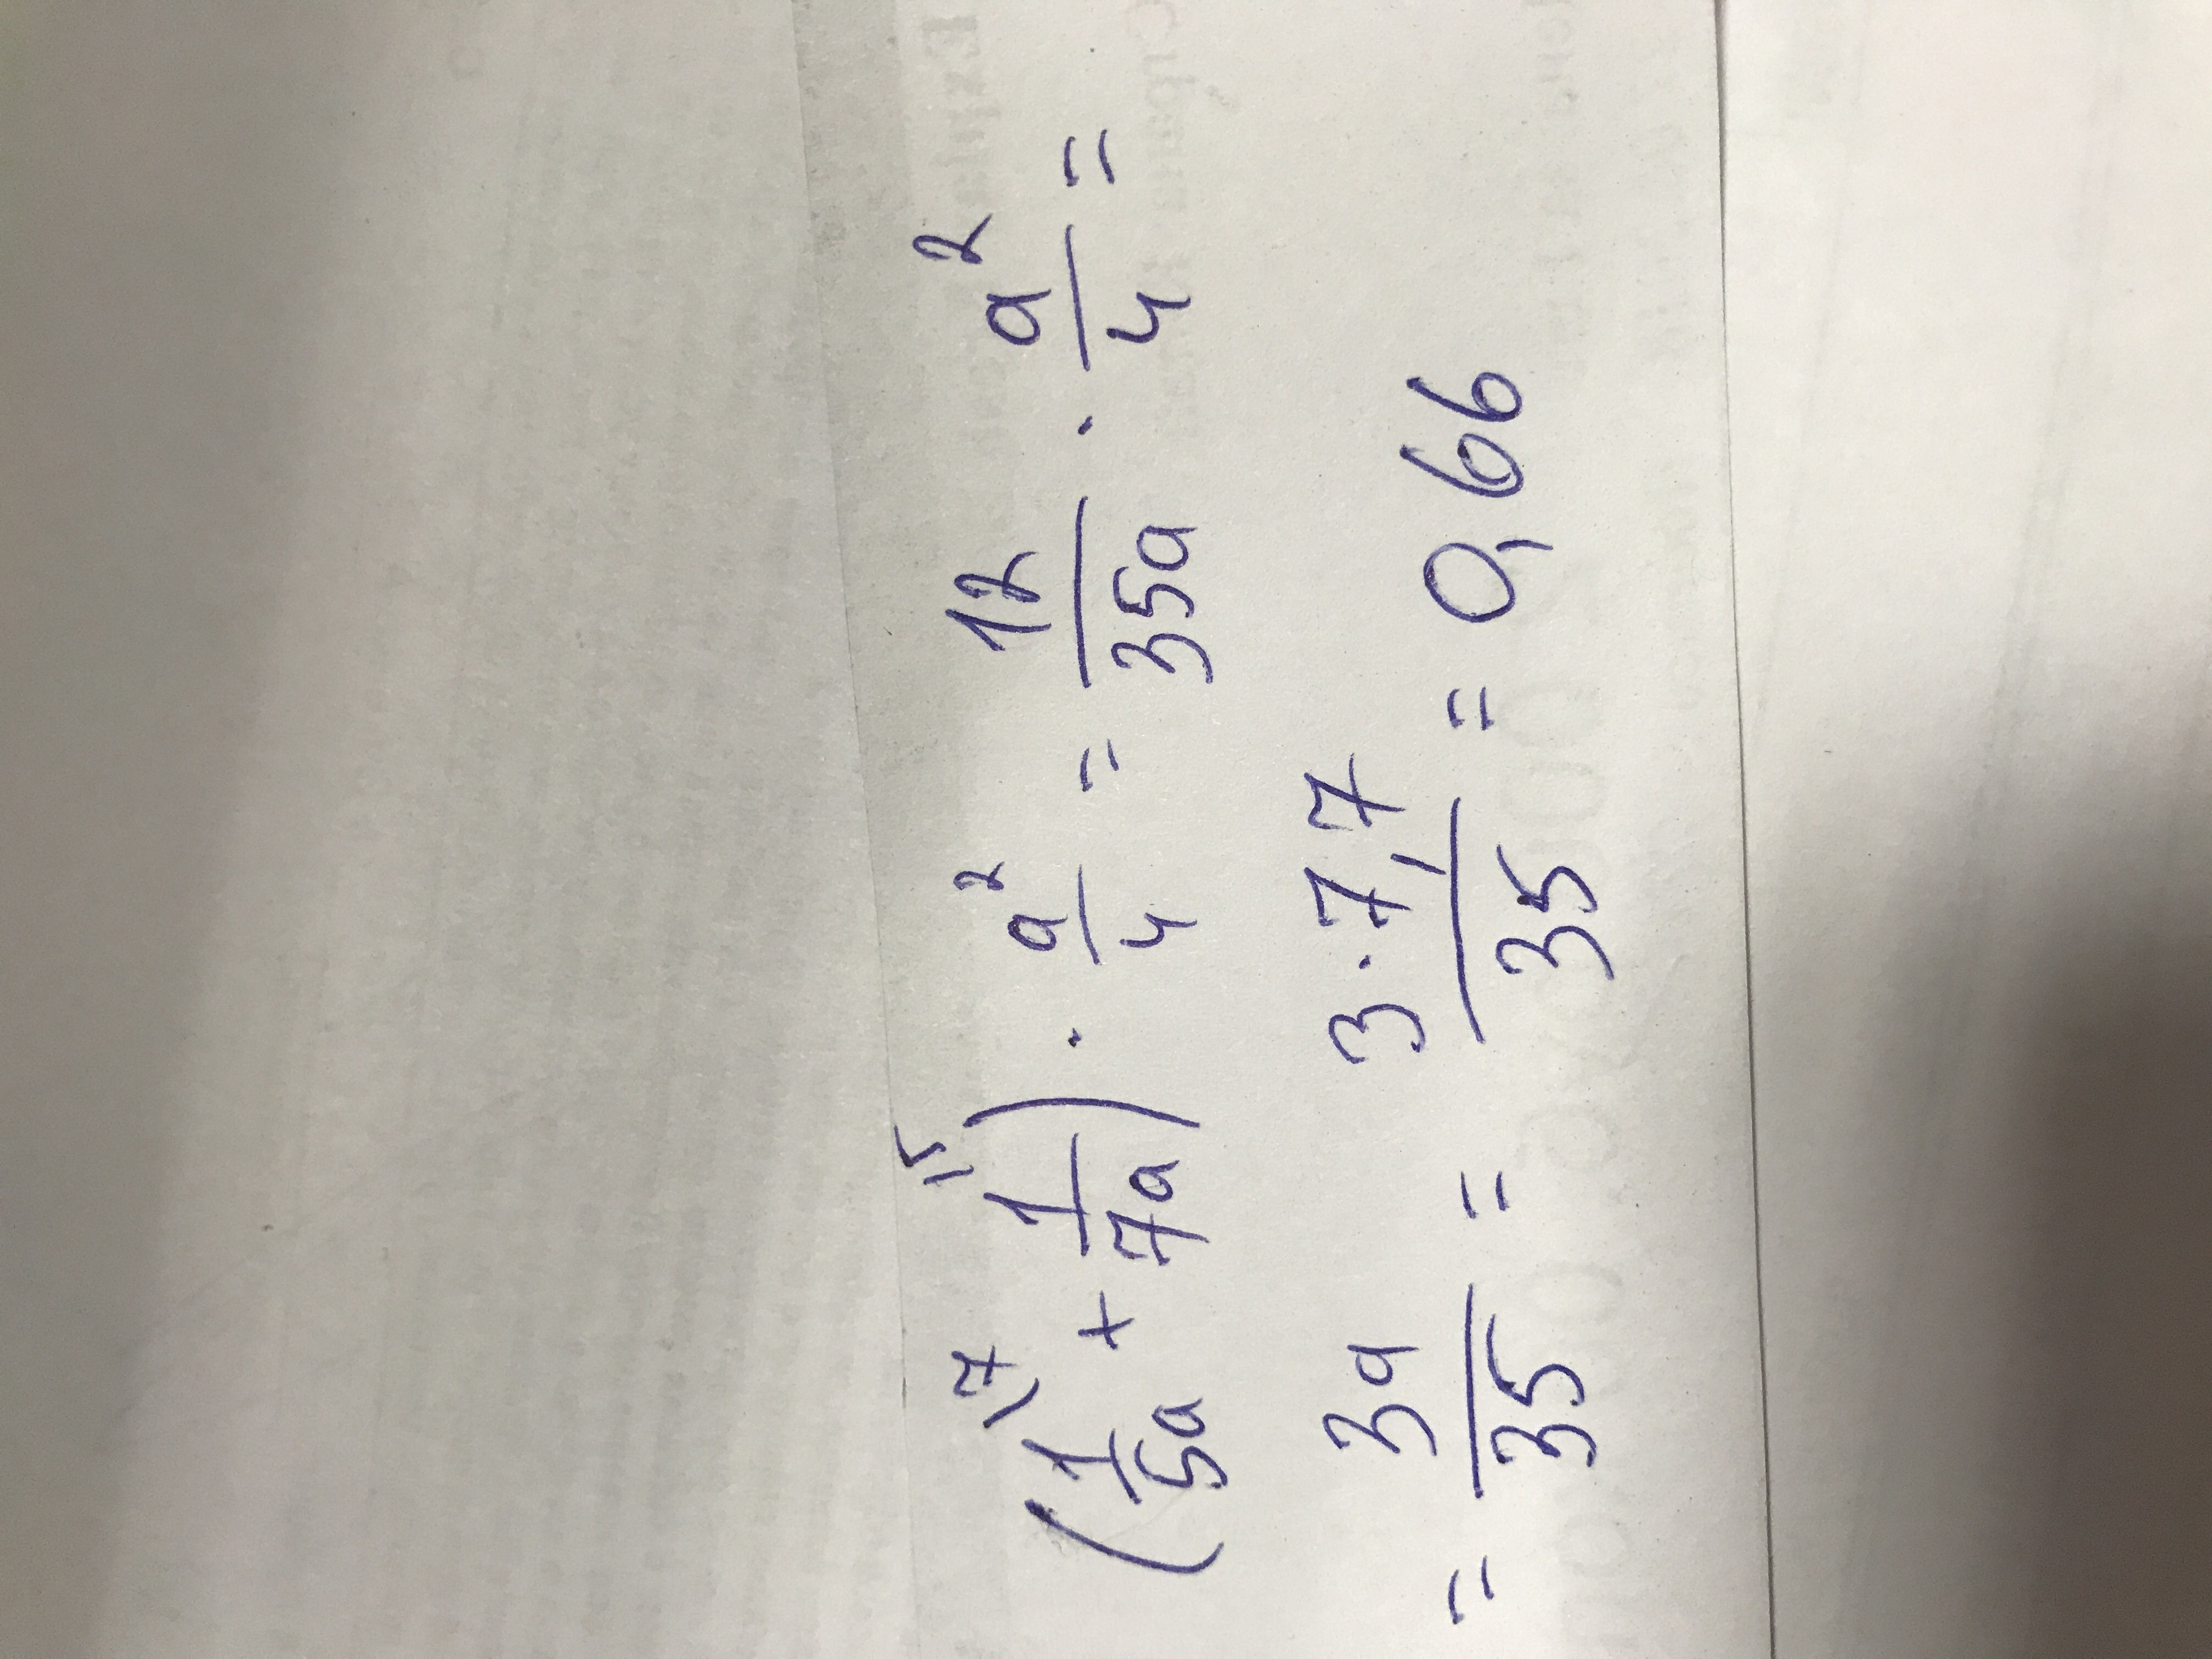 (1/5a \7 + 1/7a \5) · a²/4 = 12/35a · a²/4 =
= 3a/35 = 3·7,7/35 = 0,66